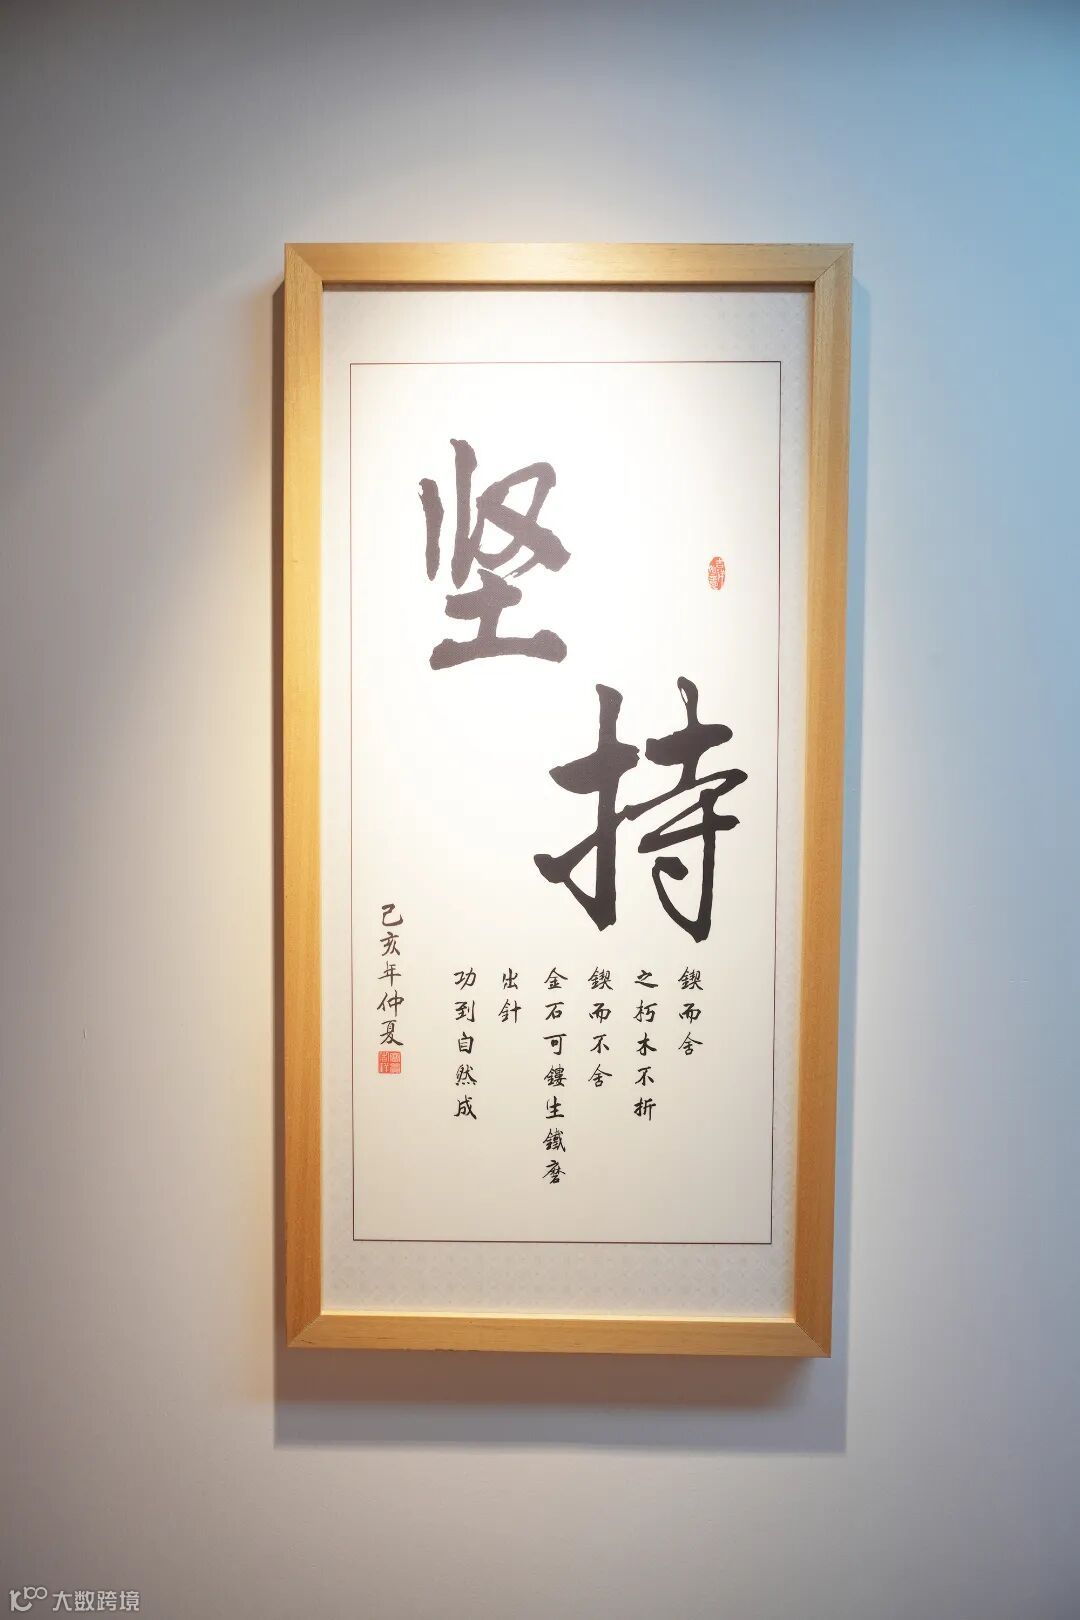 坚
持
鍥而舍
之朽木不折
鍥而不舍
金石可鏤生鐵磨
出針
功到自然成
己亥年仲夏
大数跨境